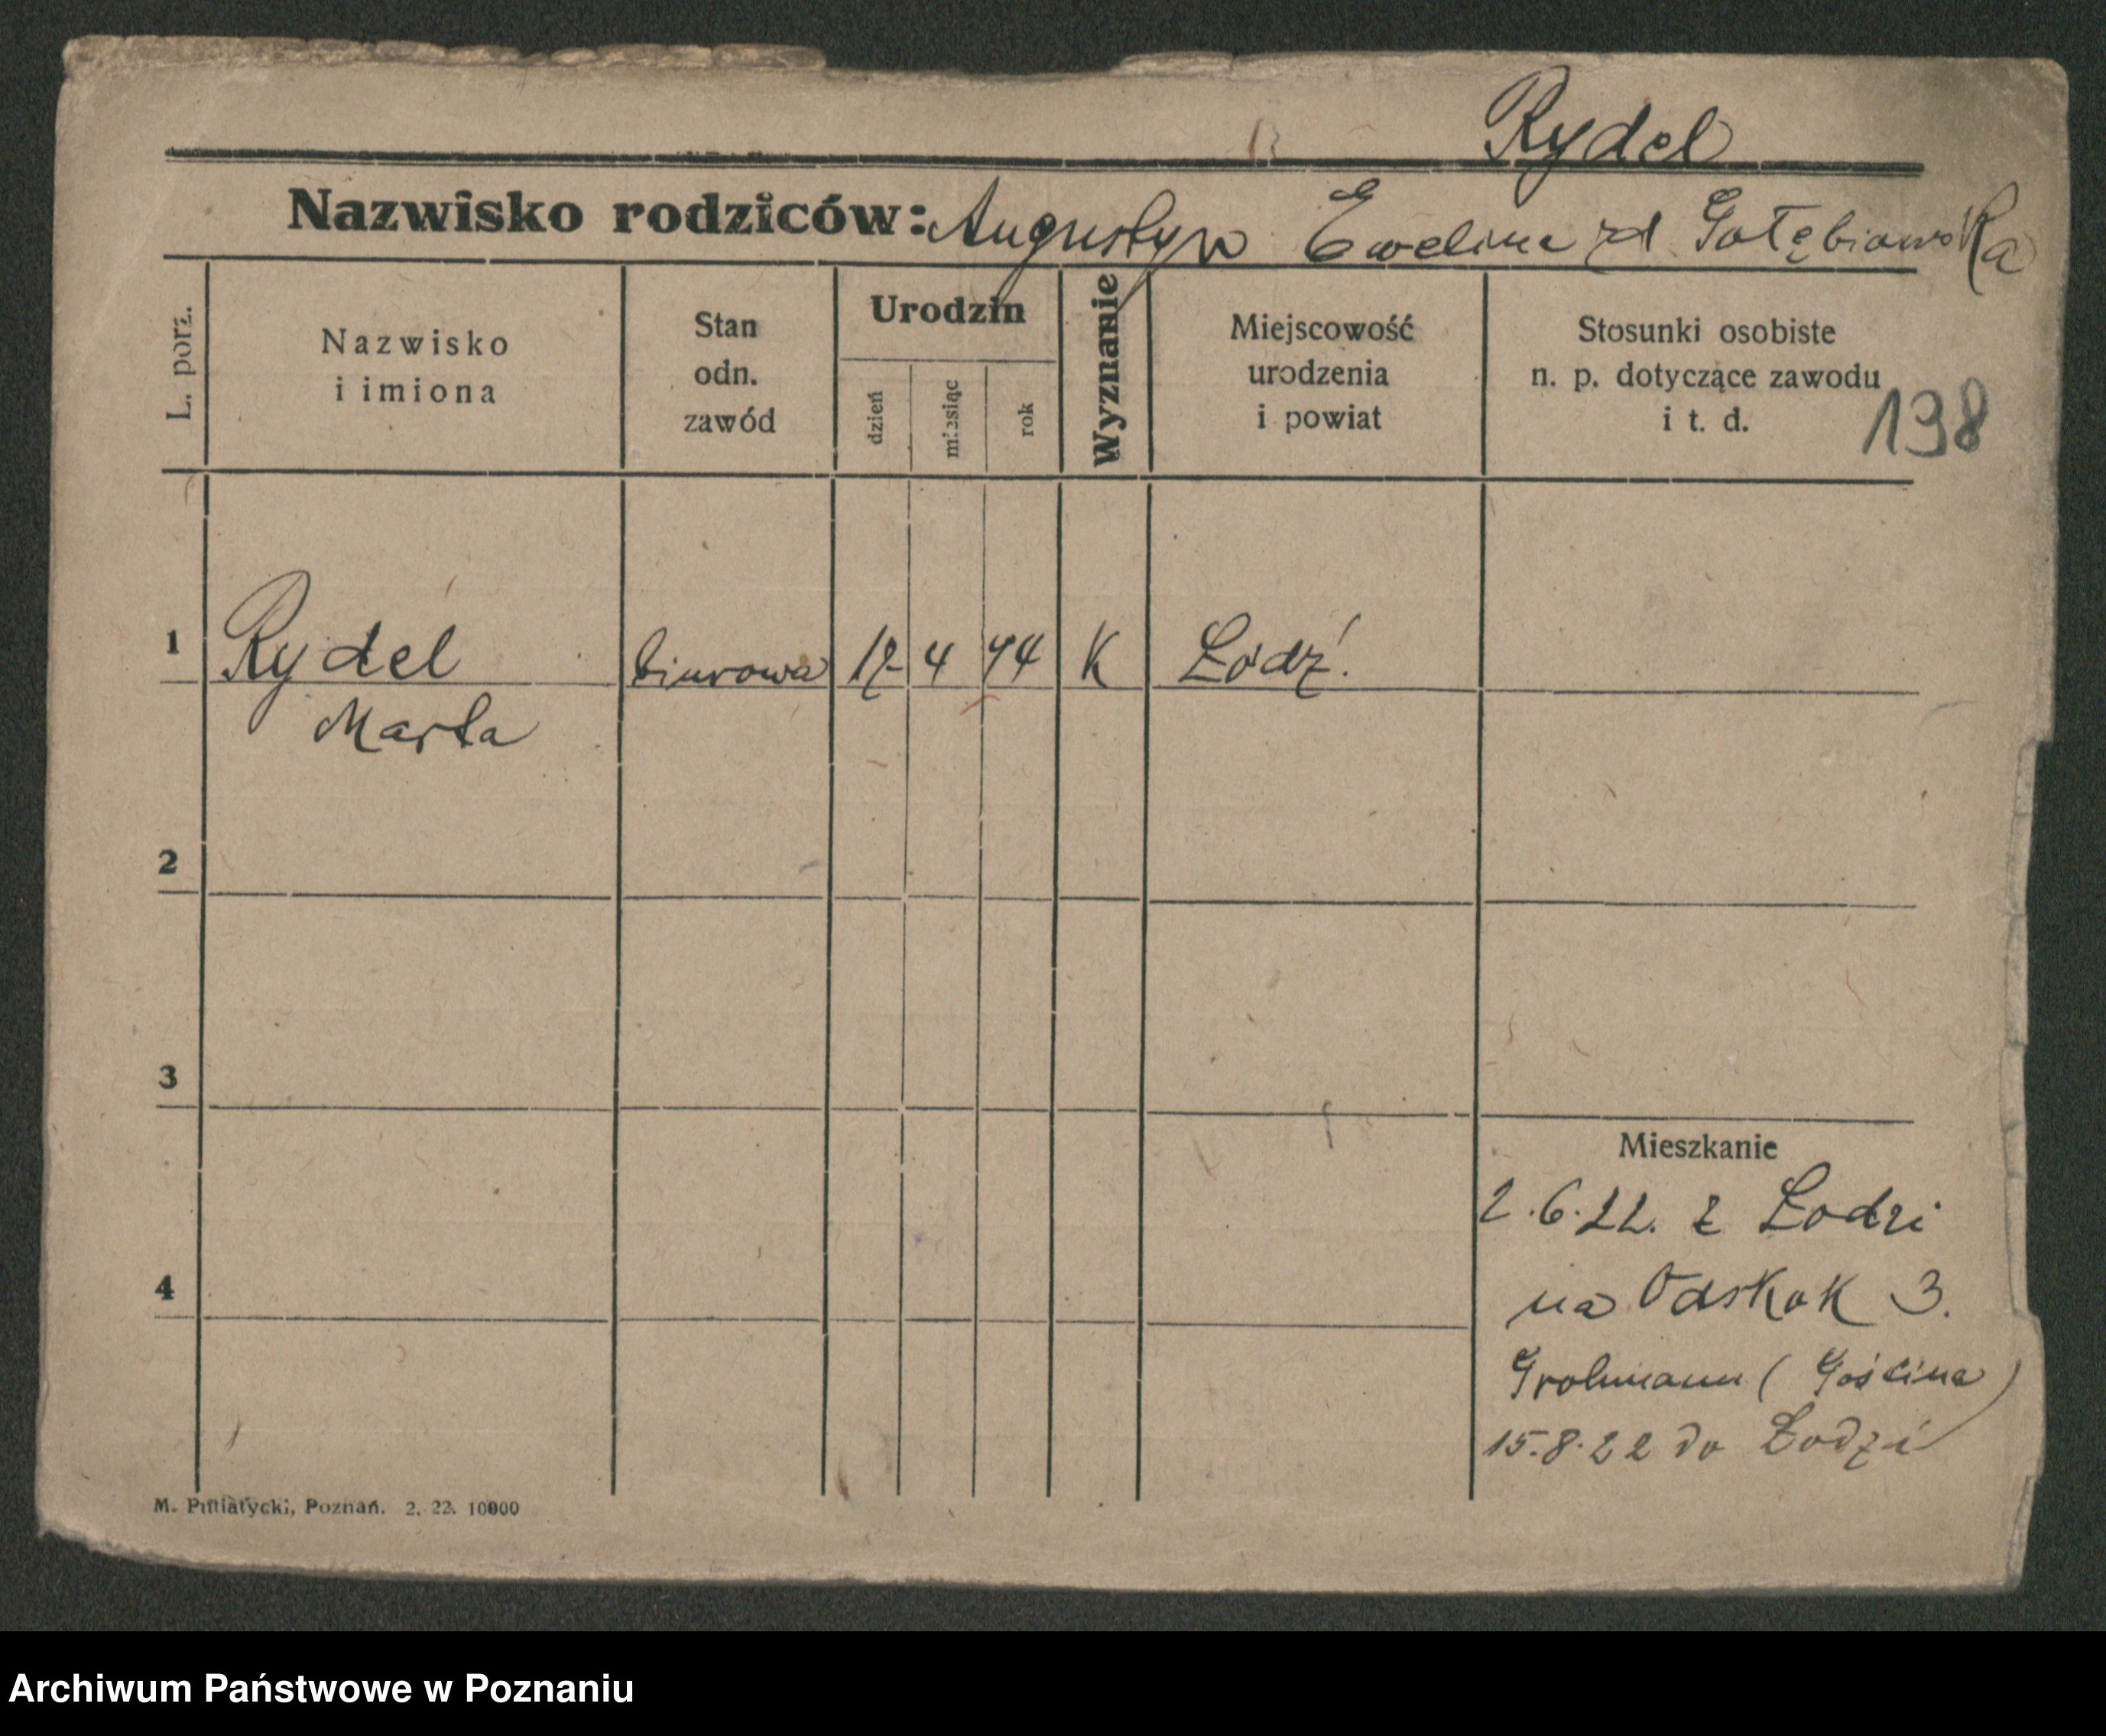 Rydel
Nazwisko rodziców: Augustyn Ewelina zd Gołębiowska
L. porz.
Nazwisko
i imiona
Stan
odn.
zawód
Urodzin
dzień
miesiąc
rok
Wyznanie
Miejscowość
urodzenia
i powiat
Stosunki osobiste
n. p. dotyczące zawodu
i t. d.
198
1 Rydel biurowa 4 K Łódź.
Marta
2
3
Mieszkanie
2.6.22. z Łodzi
4
na Odskok 3.
Grohmann (Gościna)
15.8.22 do Łodzi
M. Poznań. 2. 22. 10000
Archiwum Państwowe w Poznaniu